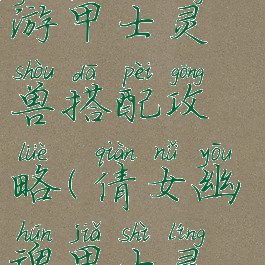 游甲士灵
shòu dā pèi gōng
兽搭配攻
lüè qiàn nǚ yōu
略(倩女幽
hún jiǎ shì líng
魂甲士灵